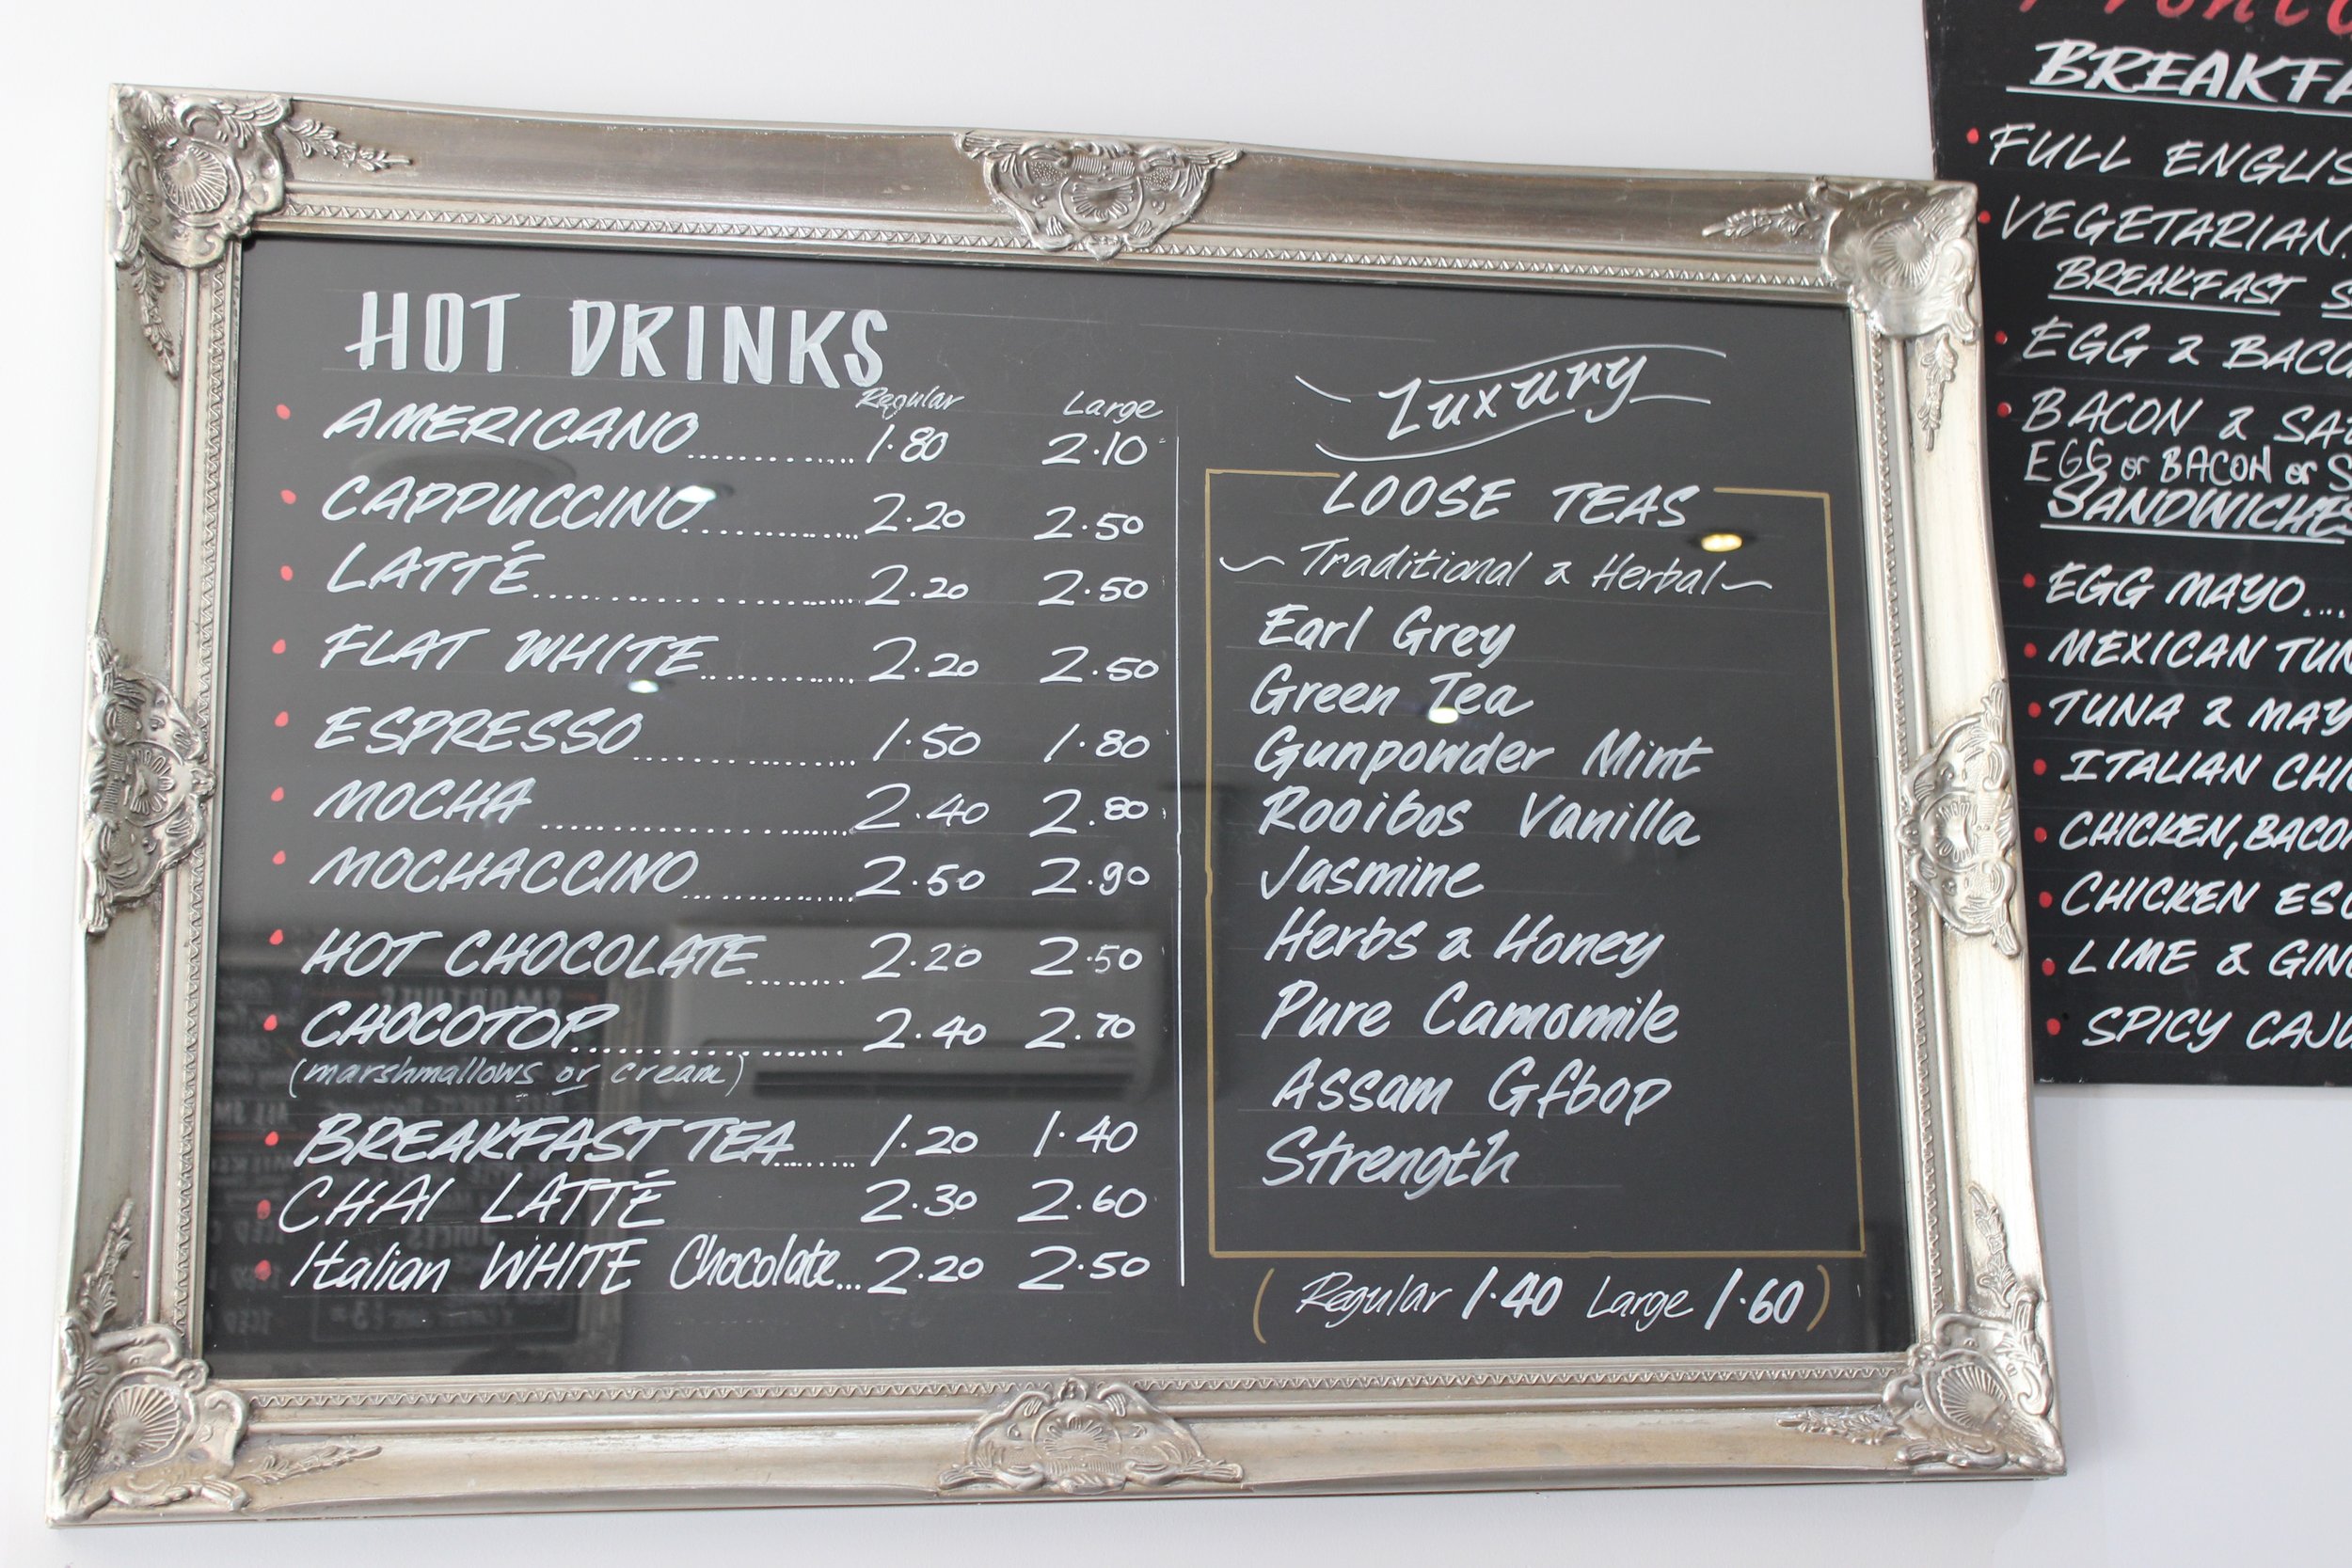 HOT DRINKS
Regular Large
AMERICANO............1.80 2.10
CAPPUCCINO............2.20 2.50
LATTÉ............2.20 2.50
FLAT WHITE............2.20 2.50
ESPRESSO............1.50 1.80
MOCHA ............2.40 2.80
MOCHACCINO............2.50 2.90
HOT CHOCOLATE.......2.20 2.50
CHOCOTOP............2.40 2.70
(marshmallows or cream)
BREAKFAST TEA.......1.20 1.40
CHAI LATTÉ 2.30 2.60
Italian WHITE Chocolate...2.20 2.50
Luxury
LOOSE TEAS
~ Traditional & Herbal ~
Earl Grey
Green Tea
Gunpowder Mint
Rooibos Vanilla
Jasmine
Herbs & Honey
Pure Camomile
Assam Gfbop
Strength
(Regular 1.40 Large 1.60)
FULL
VEGETARIAN.
BREAKFAST
EGG &
BACON &
EGG or BACON or
SANDWICHES
EGG MAYO....
MEXICAN
TUNA &
ITALIAN
CHICKEN,
CHICKEN
LIME &
SPICY